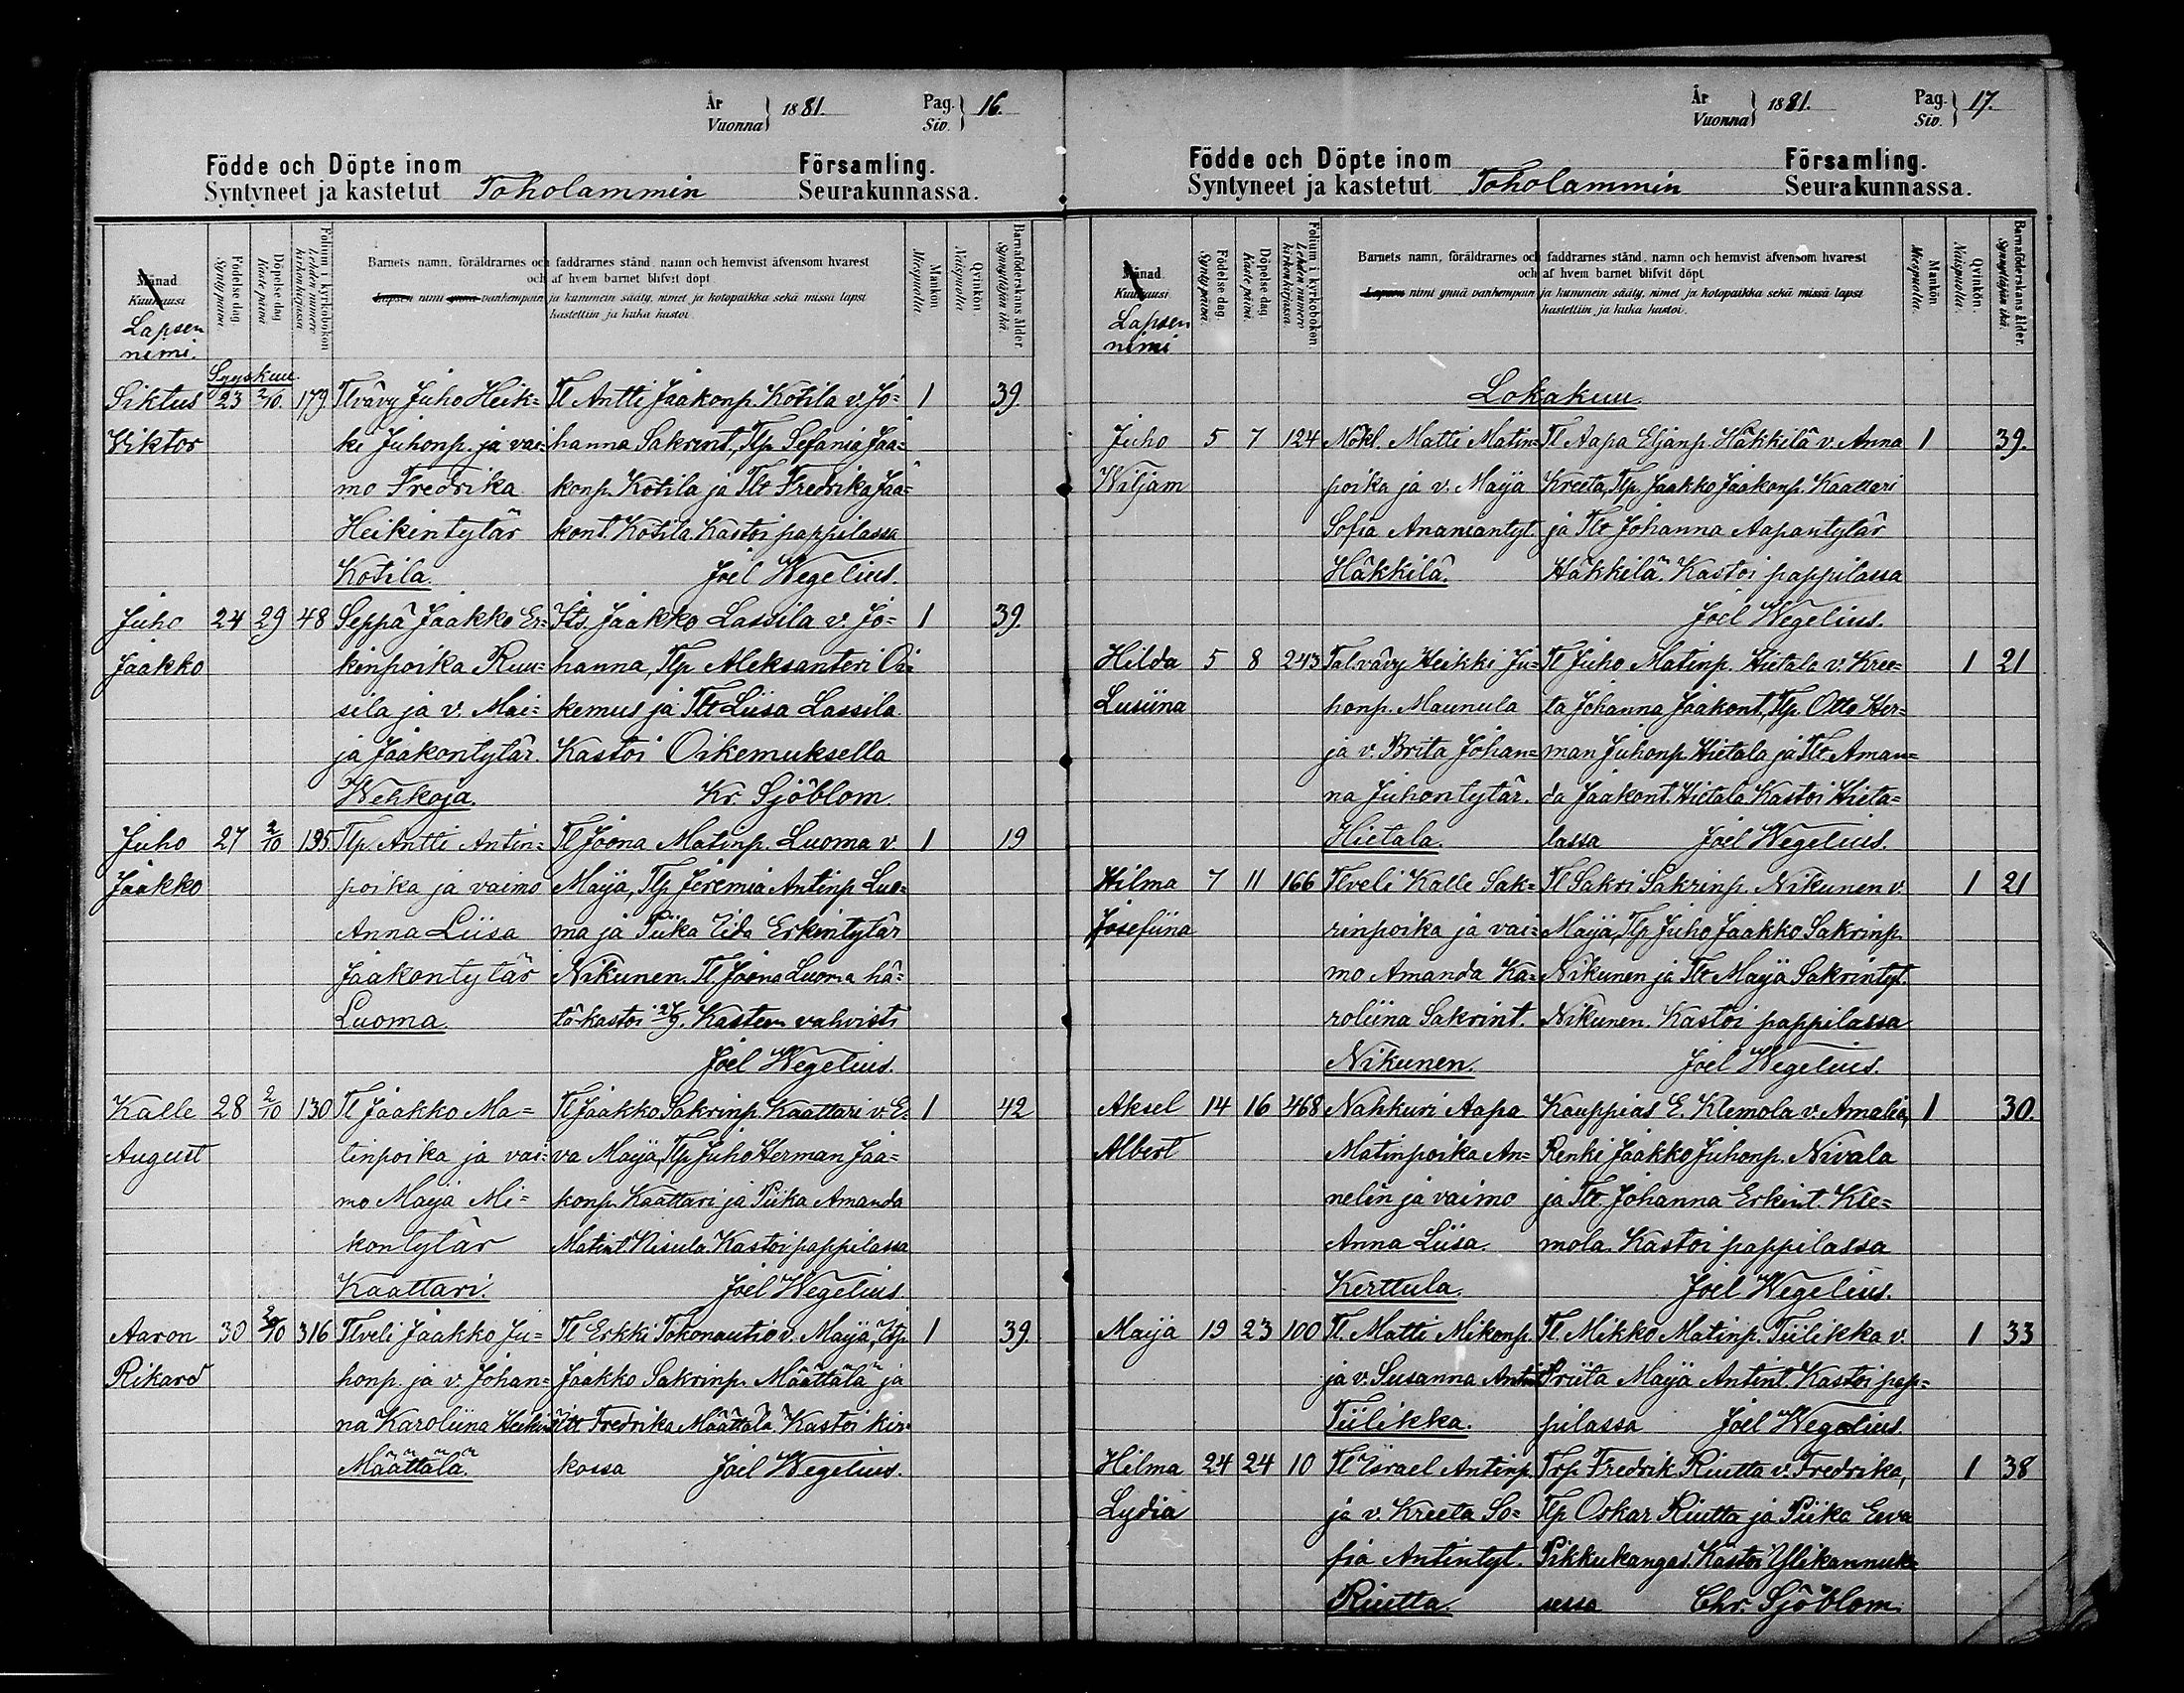 År
Vuonna } 1881.
Pag.
Siv. } 16.
Födde och Döpte inom
Församling.
Syntyneet ja kastetut Toholammin Seurakunnassa.
Månad
Kuukausi
Lapsen
nimi.
Födelse dag
Syntypäivä
Döpelse dag
Kaste päivä
Folium i kyrkoboken
Lehden numero
kirkonkirjassa
Barnets namn, föräldrarnes och faddrarnes stånd, namn och hemvist äfvensom hvarest
och af hvem barnet blifvit döpt
Lapsen nimi ynnä vanhempain ja kummein sääty, nimet ja kotopaikka sekä missä lapsi
kastettiin ja kuka kastoi.
Mankön
Miespuolia.
Qvinkön
Naispuolia
Barnaföderskans ålder
Synnyttäjän ikä.
Syyskuu.
Siktus 23 2/10. 179 Tlvävy Juho Heik= Tl Antti Jaakonp. Kotila v. Jo= 1 39
Wiktor ki Juhonp. ja vai= hanna Sakrint., Tlp Sefania Jaa=
mo Fredrika konp. Kotila ja Tlt Fredrika Jaa=
Heikintytär kont. Kotila. Kastoi pappilassa
Kotila. Joel Wegelius.
Juho 24 29 48 Seppä Jaakko Er= Its. Jaakko Lassila v. Jo= 1 39.
Jaakko kinpoika Ruu= hanna, Tlp Aleksanteri Oi=
sila ja v. Mai= kemus ja Tlt Liisa Lassila
ja Jaakontytär. Kastoi Oikemuksella
Wehkoja. Kr. Sjöblom
Juho 27 2/10 195 Tlp. Antti Antin= Tl Joona Matinp. Luoma v. 1 19
Jaakko poika ja vaimo Maija, Tlp Jeremia Antinp Luo=
Anna Liisa ma ja Piika Iida Erkintytär
Jaakontytär Nikunen. Tl. Joona Luoma hä=
Luoma. tä-kastoi 27/9. Kasteen vahvisti
Joel Wegelius.
Kalle 28 2/10 130 Tl Jaakko Ma= Tl Jaakko Sakrinp. Kaattari v. E= 1 42
August tinpoika ja vai= va Maija, Tlp Juho Herman Jaa=
mo Maija Mi= konp. Kaattari ja Piika Amanda
kontytär Matint. Nisula. Kastoi pappilassa
Kaattari. Joel Wegelius.
Aaron 30 2/10 316 Tlveli Jaakko Ju= Tl Erkki Tokonautio v. Maija, Itp. 1 39.
Rikard honp. ja v. Johan= Jaakko Sakrinp. Määttälä ja
na Karoliina Heikint Itt Fredrika Määttälä. Kastoi kir=
Määttälä. kossa Joel Wegelius.
År
Vuonna } 1881.
Pag.
Siv. } 17.
Födde och Döpte inom
Församling.
Syntyneet ja kastetut Toholammin Seurakunnassa.
Månad
Kuukausi
Lapsen
nimi
Födelse dag
Synty päivä.
Döpelse dag
Kaste päivä.
Folium i kyrkoboken
Lehden numero
kirkonkirjassa.
Barnets namn, föräldrarnes och faddrarnes stånd, namn och hemvist äfvensom hvarest
och af hvem barnet blifvit döpt
Lapsen nimi ynnä vanhempain ja kummein sääty, nimet ja kotopaikka sekä missä lapsi
kastettiin ja kuka kastoi.
Mankön
Miespuolia.
Qvinkön.
Naispuolia.
Barnaföderskans ålder.
Synnyttäjän ikä.
Lokakuu.
Juho 5 7 124 Mökl. Matti Matin= Tl Aapa Eljanp. Häkkilä v. Anna 1 39.
Wiljam poika ja v. Maija Kreeta, Tlp. Jaakko Jaakonp. Kaattari
Sofia Ananiantyt. ja Tlt Johanna Aapantytär
Häkkilä. Häkkilä. Kastoi pappilassa
Joel Wegelius.
Hilda 5 8 243 Talvävy Heikki Ju= Tl Juho Matinp. Hietala v. Kree= 1 21
Lusiina honp. Maunula ta Johanna Jaakont., Tlp. Otto Her=
ja v. Brita Johan= man Juhonp. Hietala ja Tlt. Aman=
na Juhontytär. da Jaakont. Hietala. Kastoi Hieta=
Hietala. lassa Joel Wegelius.
Hilma 7 11 166 Tlveli Kalle Sak= Tl Sakri Sakrinp. Nikunen v. 1 21
Josefiina rinpoika ja vai= Maija, Tlp Juho Jaakko Sakrinp.
mo Amanda Ka= Nikunen ja Tlt Maija Sakrintyt.
roliina Sakrint. Nikunen. Kastoi pappilassa
Nikunen. Joel Wegelius.
Aksel 14 16 468 Nahkuri Aapa Kauppias E. Klemola v. Amalia, 1 30.
Albert Matinpoika An= Renki Jaakko Juhonp. Nivala
nelin ja vaimo ja Tlt. Johanna Erkint. Kle=
Anna Liisa. mola. Kastoi pappilassa
Kerttula. Joel Wegelius.
Maija 19 23 100 Tl. Matti Mikonp. Tl. Mikko Matinp. Tiilikka v. 1 33
ja v. Susanna Antint Priita Maija Antint. Kastoi pap=
Tiilikka. pilassa Joel Wegelius.
Hilma 24 24 10 Tl Israel Antinp. Trp. Fredrik Riutta v. Fredrika, 1 38
Lydia ja v. Kreeta So= Tlp Oskar Riutta ja Piika Eeva
fia Antintyt. Pikkukangas. Kastoi Ylikannuk=
Riutta. sessa Chr. Sjöblom.